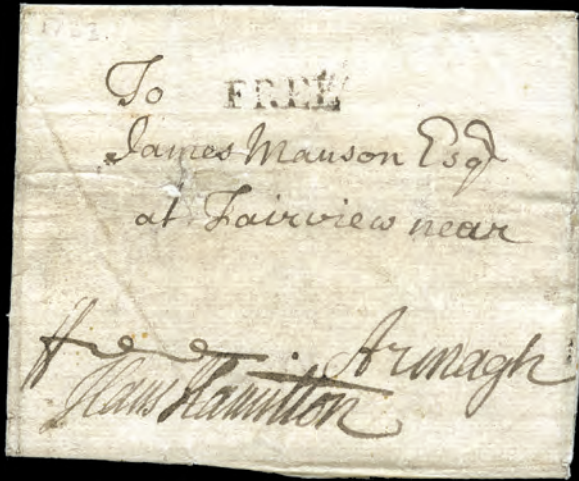 To FREE
James Manson Esqr
at Fairview near
Armagh
ffree
Hans Hamilton